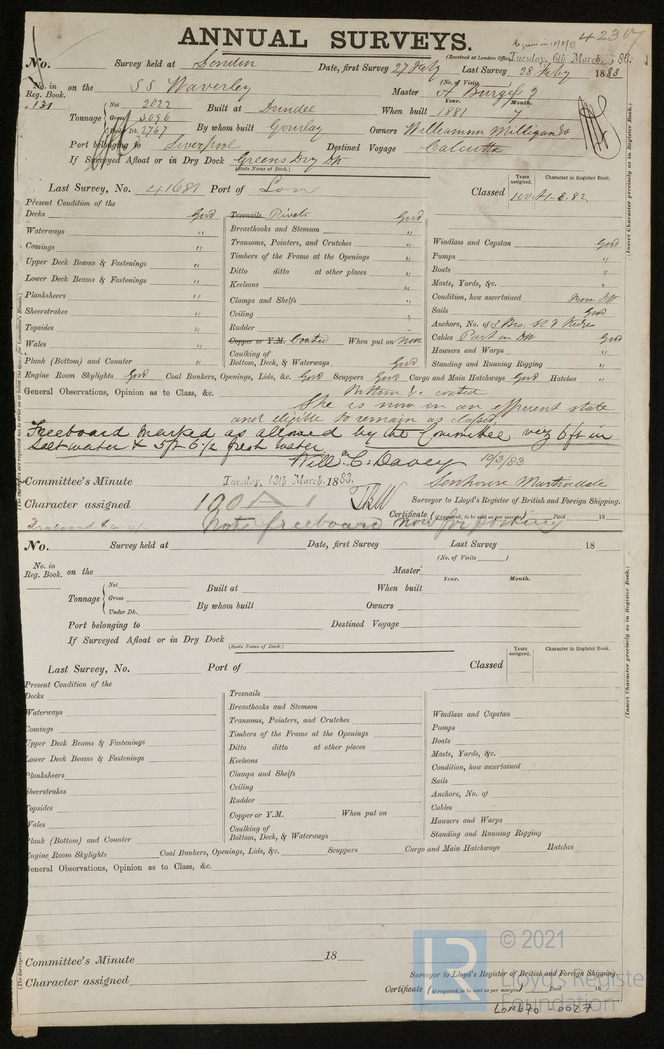 42307
ANNUAL SURVEYS.
(Received at London Office Tuesday, 6th March, 83.
No. Survey held at London Date, first Survey 27 Feby Last Survey 28 Feby 1883
No. in Reg. Book. on the SS Waverley Master
(No. of Visits 2
131
Tonnage Net 2022 Built at Dundee When built 1881 Year. 7 Month.
Gross 3096
Under Dk. 2767 By whom built Gourlay Owners Williamson Milligan & Co
Port belonging to Liverpool Destined Voyage Calcutta
If Surveyed Afloat or in Dry Dock Greens Dry Dk
(State Name of Dock.)
Last Survey, No. 41681 Port of Lon Classed
Years assigned. Character in Register Book.
100 A1-8.82.
(Insert Character precisely as in Register Book.)
Present Condition of the
Decks Good
Waterways "
Comings "
Upper Deck Beams & Fastenings "
Lower Deck Beams & Fastenings "
Planksheers "
Sheerstrakes "
Topsides "
Wales "
Plank (Bottom) and Counter "
Treenails Rivets Good
Breasthooks and Stemson "
Transoms, Pointers, and Crutches "
Timbers of the Frame at the Openings "
Ditto ditto at other places "
Keelsons "
Clamps and Shelfs "
Ceiling "
Rudder "
Copper or Y.M. Coated When put on Now
Caulking of
Bottom, Deck, & Waterways Good
Windlass and Capstan Good
Pumps "
Boats "
Masts, Yards, &c. "
Condition, how ascertained From Dk
Sails Good
Anchors, No. of
Cables Part on Dk Good
Hawsers and Warps "
Standing and Running Rigging "
Engine Room Skylights Good Coal Bunkers, Openings, Lids, &c. Good Scuppers Good Cargo and Main Hatchways Good Hatches "
General Observations, Opinion as to Class, &c. Bottom &c coated
She is now in an efficient state
and eligible to remain as classed
Freeboard marked as allowed by the Committee viz 6 ft in
Salt water & 5 ft 6 1/2 fresh water
Will. C. Davey 10/3/83
Committee's Minute Tuesday, 13th March 1883. Senhouse Martindale
Character assigned 100 A 1 Surveyor to Lloyd's Register of British and Foreign Shipping.
Certificate (if required, to be sent as per margin) Paid 18
Note freeboard now for posting
No. Survey held at Date, first Survey Last Survey 18
(No. of Visits )
No. in Reg. Book. on the Master
Tonnage Net Built at When built Year. Month.
Gross
Under Dk. By whom built Owners
Port belonging to Destined Voyage
If Surveyed Afloat or in Dry Dock
(State Name of Dock.)
Last Survey, No. Port of Classed
Years assigned. Character in Register Book.
(Insert Character precisely as in Register Book.)
Present Condition of the
Decks
Waterways
Comings
Upper Deck Beams & Fastenings
Lower Deck Beams & Fastenings
Planksheers
Sheerstrakes
Topsides
Wales
Plank (Bottom) and Counter
Treenails
Breasthooks and Stemson
Transoms, Pointers, and Crutches
Timbers of the Frame at the Openings
Ditto ditto at other places
Keelsons
Clamps and Shelfs
Ceiling
Rudder
Copper or Y.M. When put on
Caulking of
Bottom, Deck, & Waterways
Windlass and Capstan
Pumps
Boats
Masts, Yards, &c.
Condition, how ascertained
Sails
Anchors, No. of
Cables
Hawsers and Warps
Standing and Running Rigging
Engine Room Skylights Coal Bunkers, Openings, Lids, &c. Scuppers Cargo and Main Hatchways Hatches
General Observations, Opinion as to Class, &c.
Committee's Minute 18
Character assigned
Surveyor to Lloyd's Register of British and Foreign Shipping.
Certificate (if required, to be sent as per margin) Paid 18
LR © 2021
Lloyd's Register
Foundation
LON670-0027